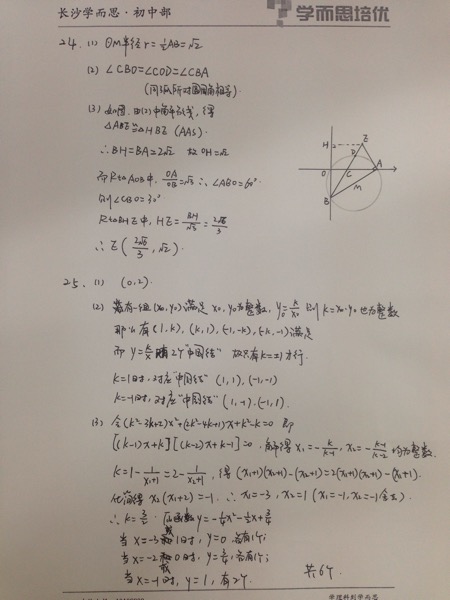 长沙学而思·初中部
学而思培优
24. (1) ⊙M半径 r=½AB=√2
(2) ∠CBO=∠COD=∠CBA
(同弧所对圆周角相等)
(3) 如图, 由(2)中角平分线, 得
△ABE≌△HBE (AAS).
∴BH=BA=2√2 故OH=√2
而Rt△AOB中, OA/OB=√3 ∴∠ABO=60°
则∠CBO=30°
Rt△BHE中, HE=BH/√3=2√6/3
∴E(2√6/3, √2).
H E D O C A M B
25. (1) (0,2).
(2) 若有一组(x₀,y₀)满足x₀,y₀为整数, y₀=k/x₀ 则k=x₀·y₀也为整数
那么有(1,k), (k,1), (-1,-k), (-k,-1)满足
而y=k/x 有2个"中国结" 故只有k=±1才行.
k=1时, 对应"中国结" (1,1), (-1,-1)
k=-1时, 对应"中国结" (1,-1), (-1,1).
(3) 令(k²-3k+2)x²+(2k²-4k+1)x+k²-k=0 即
[(k-1)x+k][(k-2)x+k-1]=0. 解得x₁=-k/(k-1), x₂=-(k-1)/(k-2)均为整数.
k=1-1/(x₁+1)=2-1/(x₂+1), 得(x₁+1)(x₂+1)-(x₂+1)=2(x₁+1)(x₂+1)-(x₁+1).
化简得 x₂(x₁+2)=-1. ∴x₁=-3, x₂=1 (x₁=-1, x₂=-1舍去)
∴k=3/2. 原函数y=-¼x²-½x+¾
当x=-3或1时, y=0 各有1个;
当x=-2或0时, y=¾, 各有1个;
当x=-1时, y=1, 有2个. 共6个.
学理科到学而思